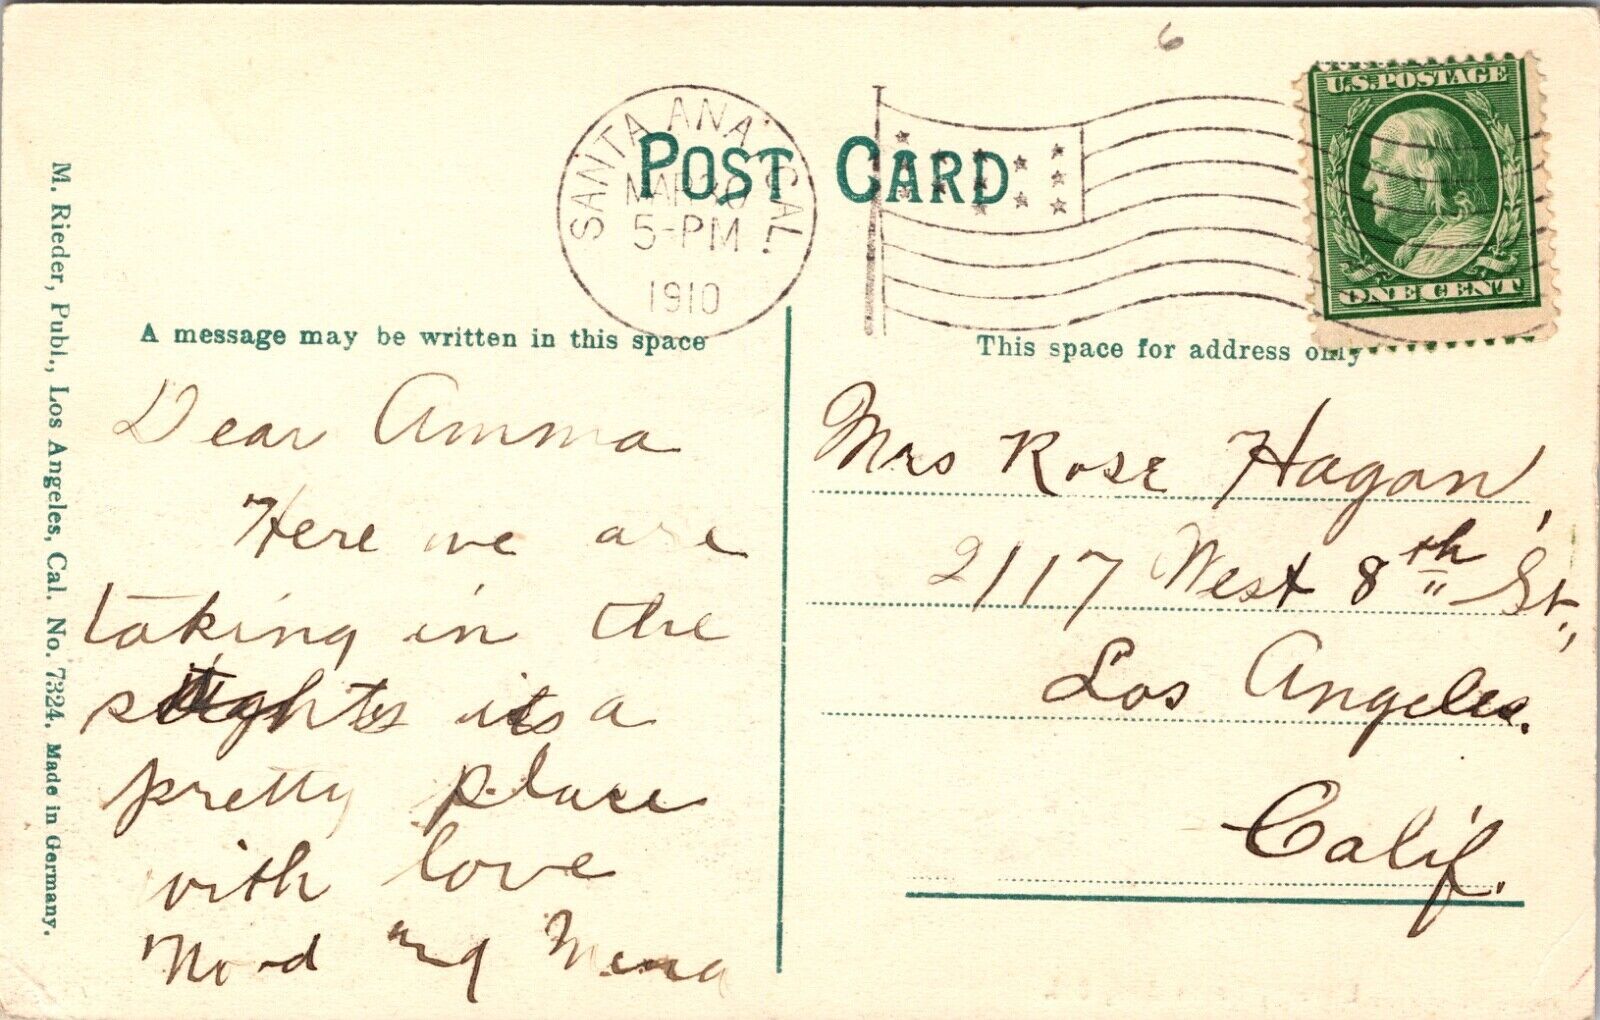 6
U.S.POSTAGE
ONE CENT
SANTA ANA, CAL.
MAR 30
5-PM
1910
POST CARD
A message may be written in this space
This space for address only
M. Rieder, Publ., Los Angeles, Cal. No. 7324. Made in Germany.
Dear Amma
Here we are
taking in the
sights its a
pretty place
with love
and Mena
Mrs Rose Hagan,
2117 West 8th St.,
Los Angeles.
Calif.